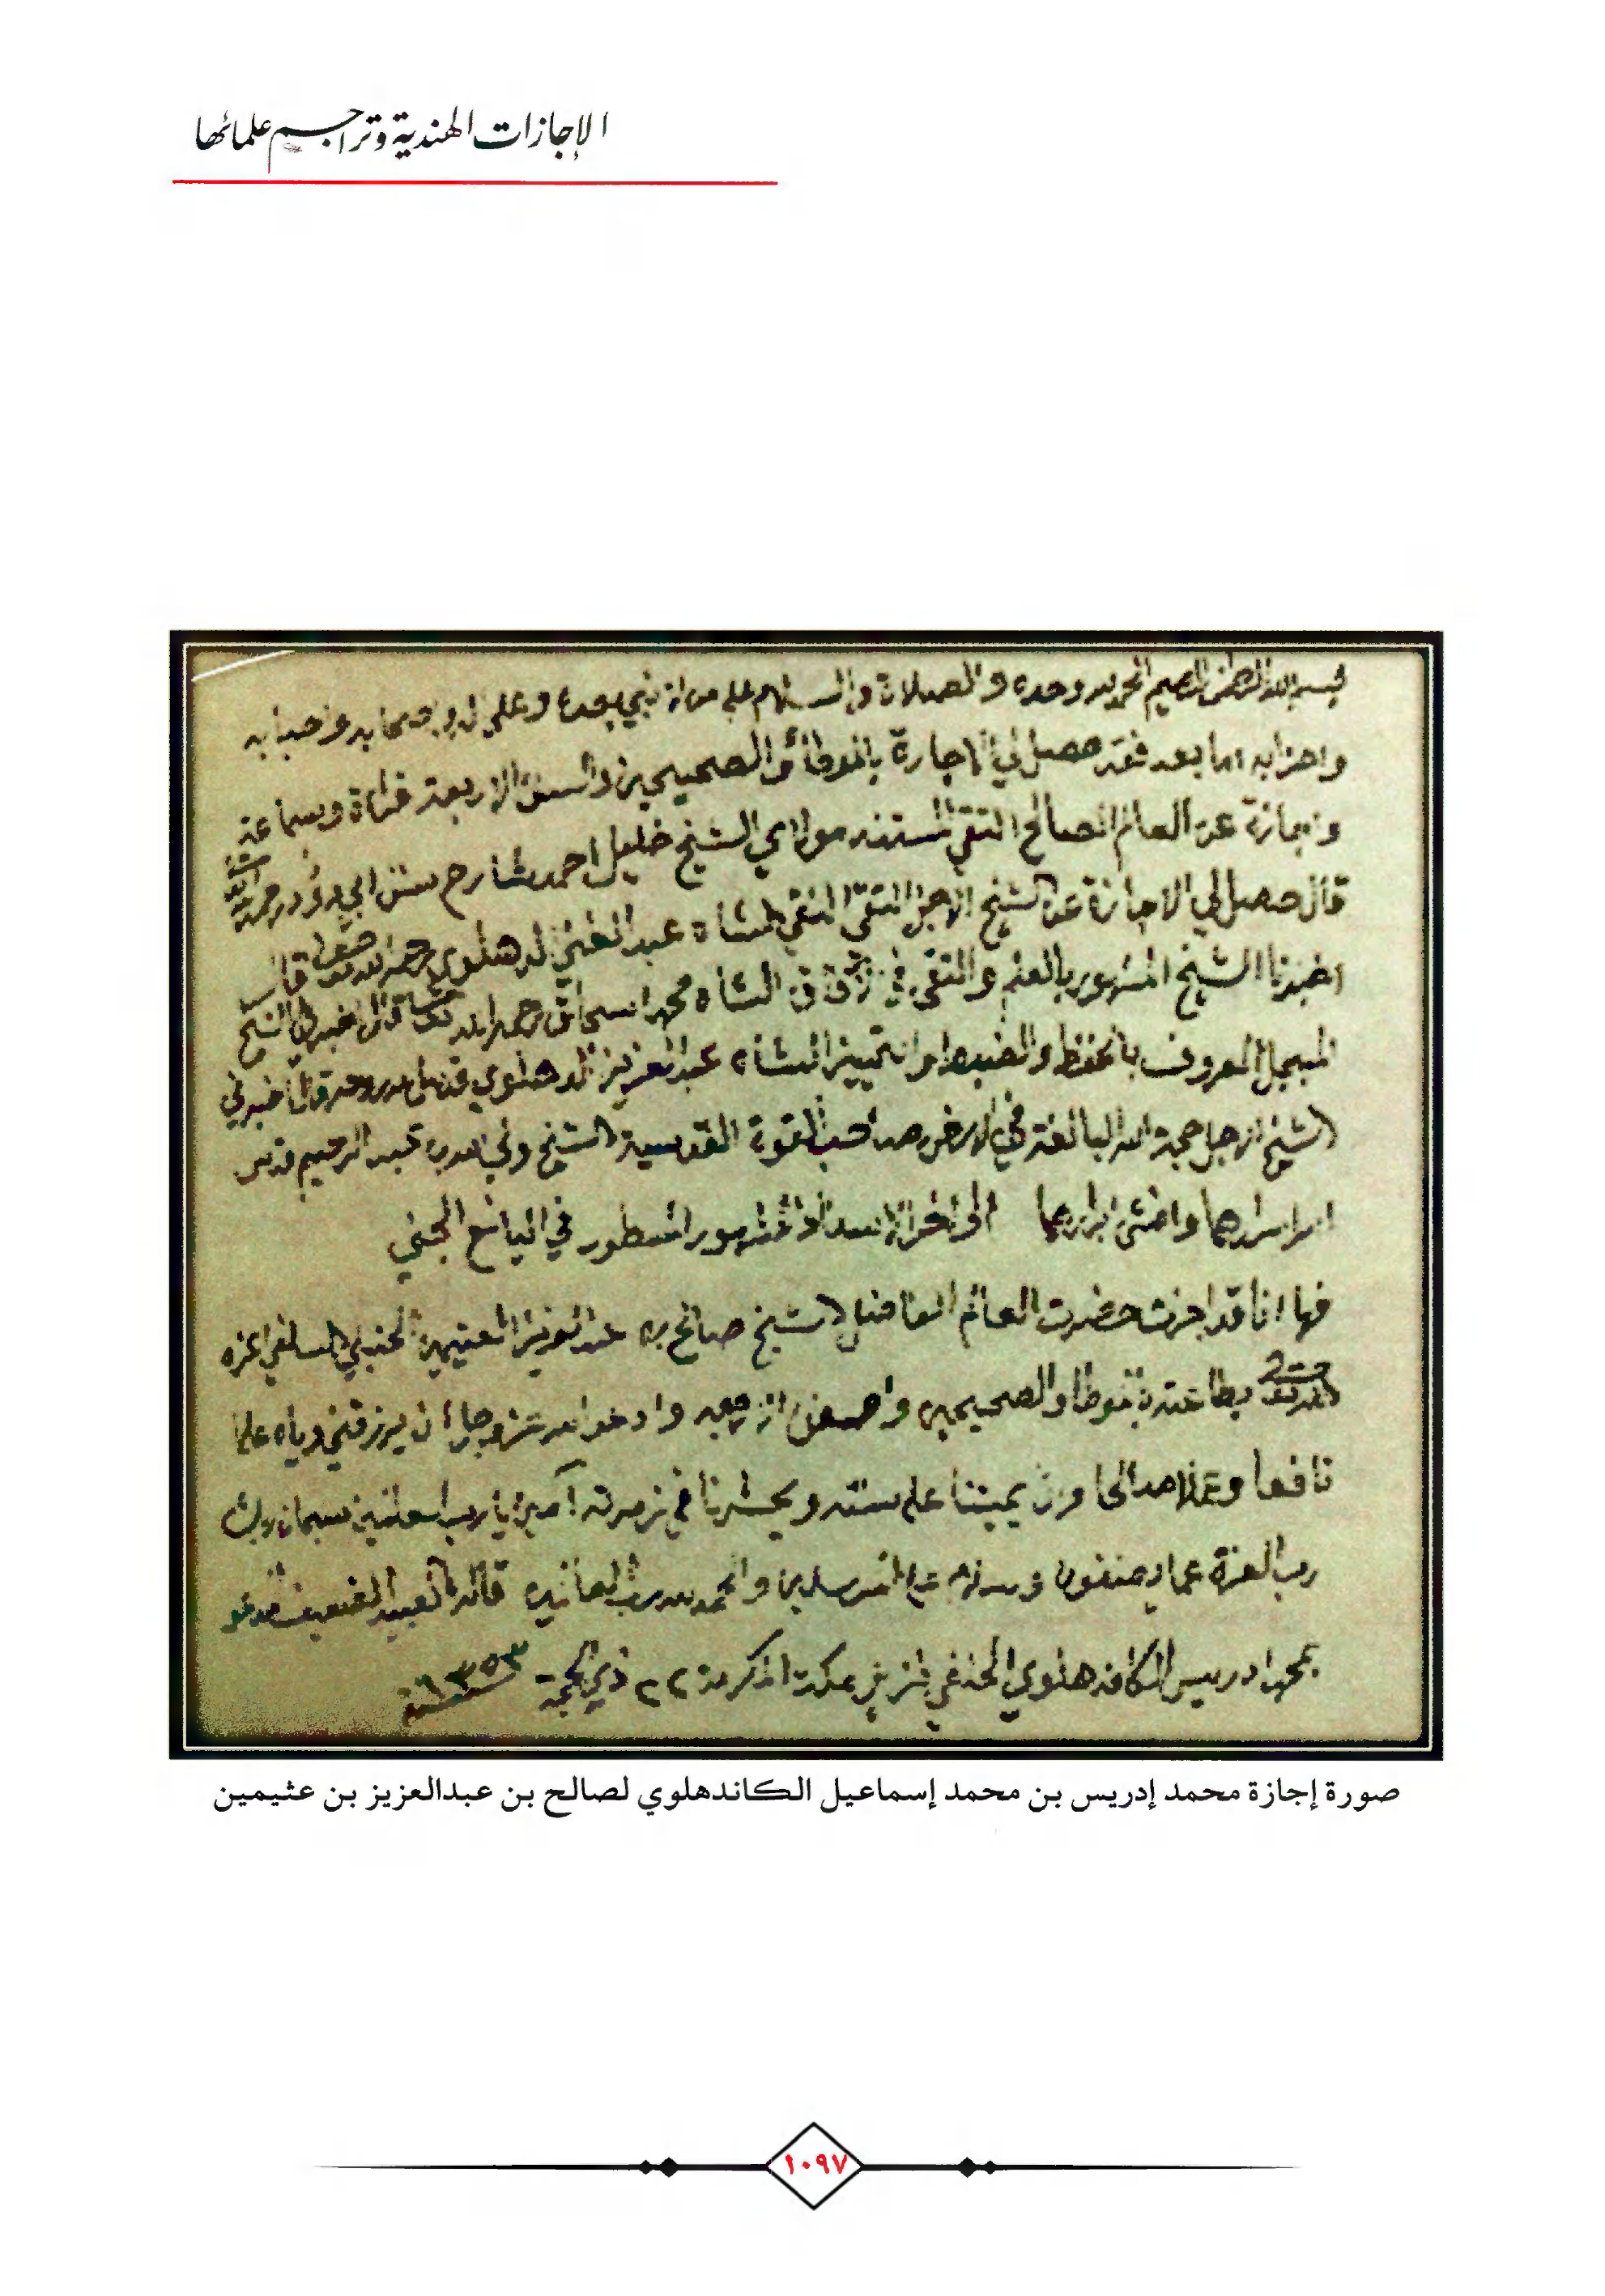 الإجازات الهندية وتراجم علمائها
بسم الله الرحمن الرحيم الحمد لله وحده والصلاة والسلام على من لا نبي بعده وعلى آله وصحابه وأحبابه
وأحزابه أما بعد فقد حصل لي الإجازة بالموطأ والصحيحين والسنن الأربعة قراءة وسماعة
وإجازة عن العالم الصالح التقي المستند مولاي الشيخ خليل أحمد شارح سنن أبي داود رحمه الله
قال حصل لي الإجازة عن الشيخ الأجل التقي النقي الشاه عبد الغني الدهلوي رحمه الله تعالى قال
أخبرنا الشيخ المشهور بالعلم والتقى في الشاه محمد إسحاق رحمه الله تعالى قال أخبرني الشيخ
المبجل المعروف بالحفظ والضبط والتمييز الشاه عبد العزيز الدهلوي قال أخبرني
الشيخ الأجل حجة الله البالغة في الأرض صاحب القوة القدسية الشيخ ولي الله بن عبد الرحيم قدس
أسرارهما إلى آخر الإسناد المشهور المسطور في اليانع الجني
فها أنا قد أجزت حضرت العالم الفاضل الشيخ صالح بن عبد العزيز العثيمين الحنبلي السلفي أعزه
الله تعالى بطاعته بالموطا والصحيحين وادعو الله عز وجل أن يرزقني وإياه علما
نافعا وعملا صالحا وأن يميتنا على سنته ويحشرنا في زمرته آمين يا رب العلمين سبحان ربك
رب العزة عما يصفون وسلام على المرسلين والحمد لله رب العالمين قاله العبد الضعيف المدعو
بمحمد ادريس الكاندهلوي الحنفي نزيل مكة المكرمة ٢٢ ذي الحجة سنة ١٣٥٣
صورة إجازة محمد إدريس بن محمد إسماعيل الكاندهلوي لصالح بن عبدالعزيز بن عثيمين
١٠٩٧